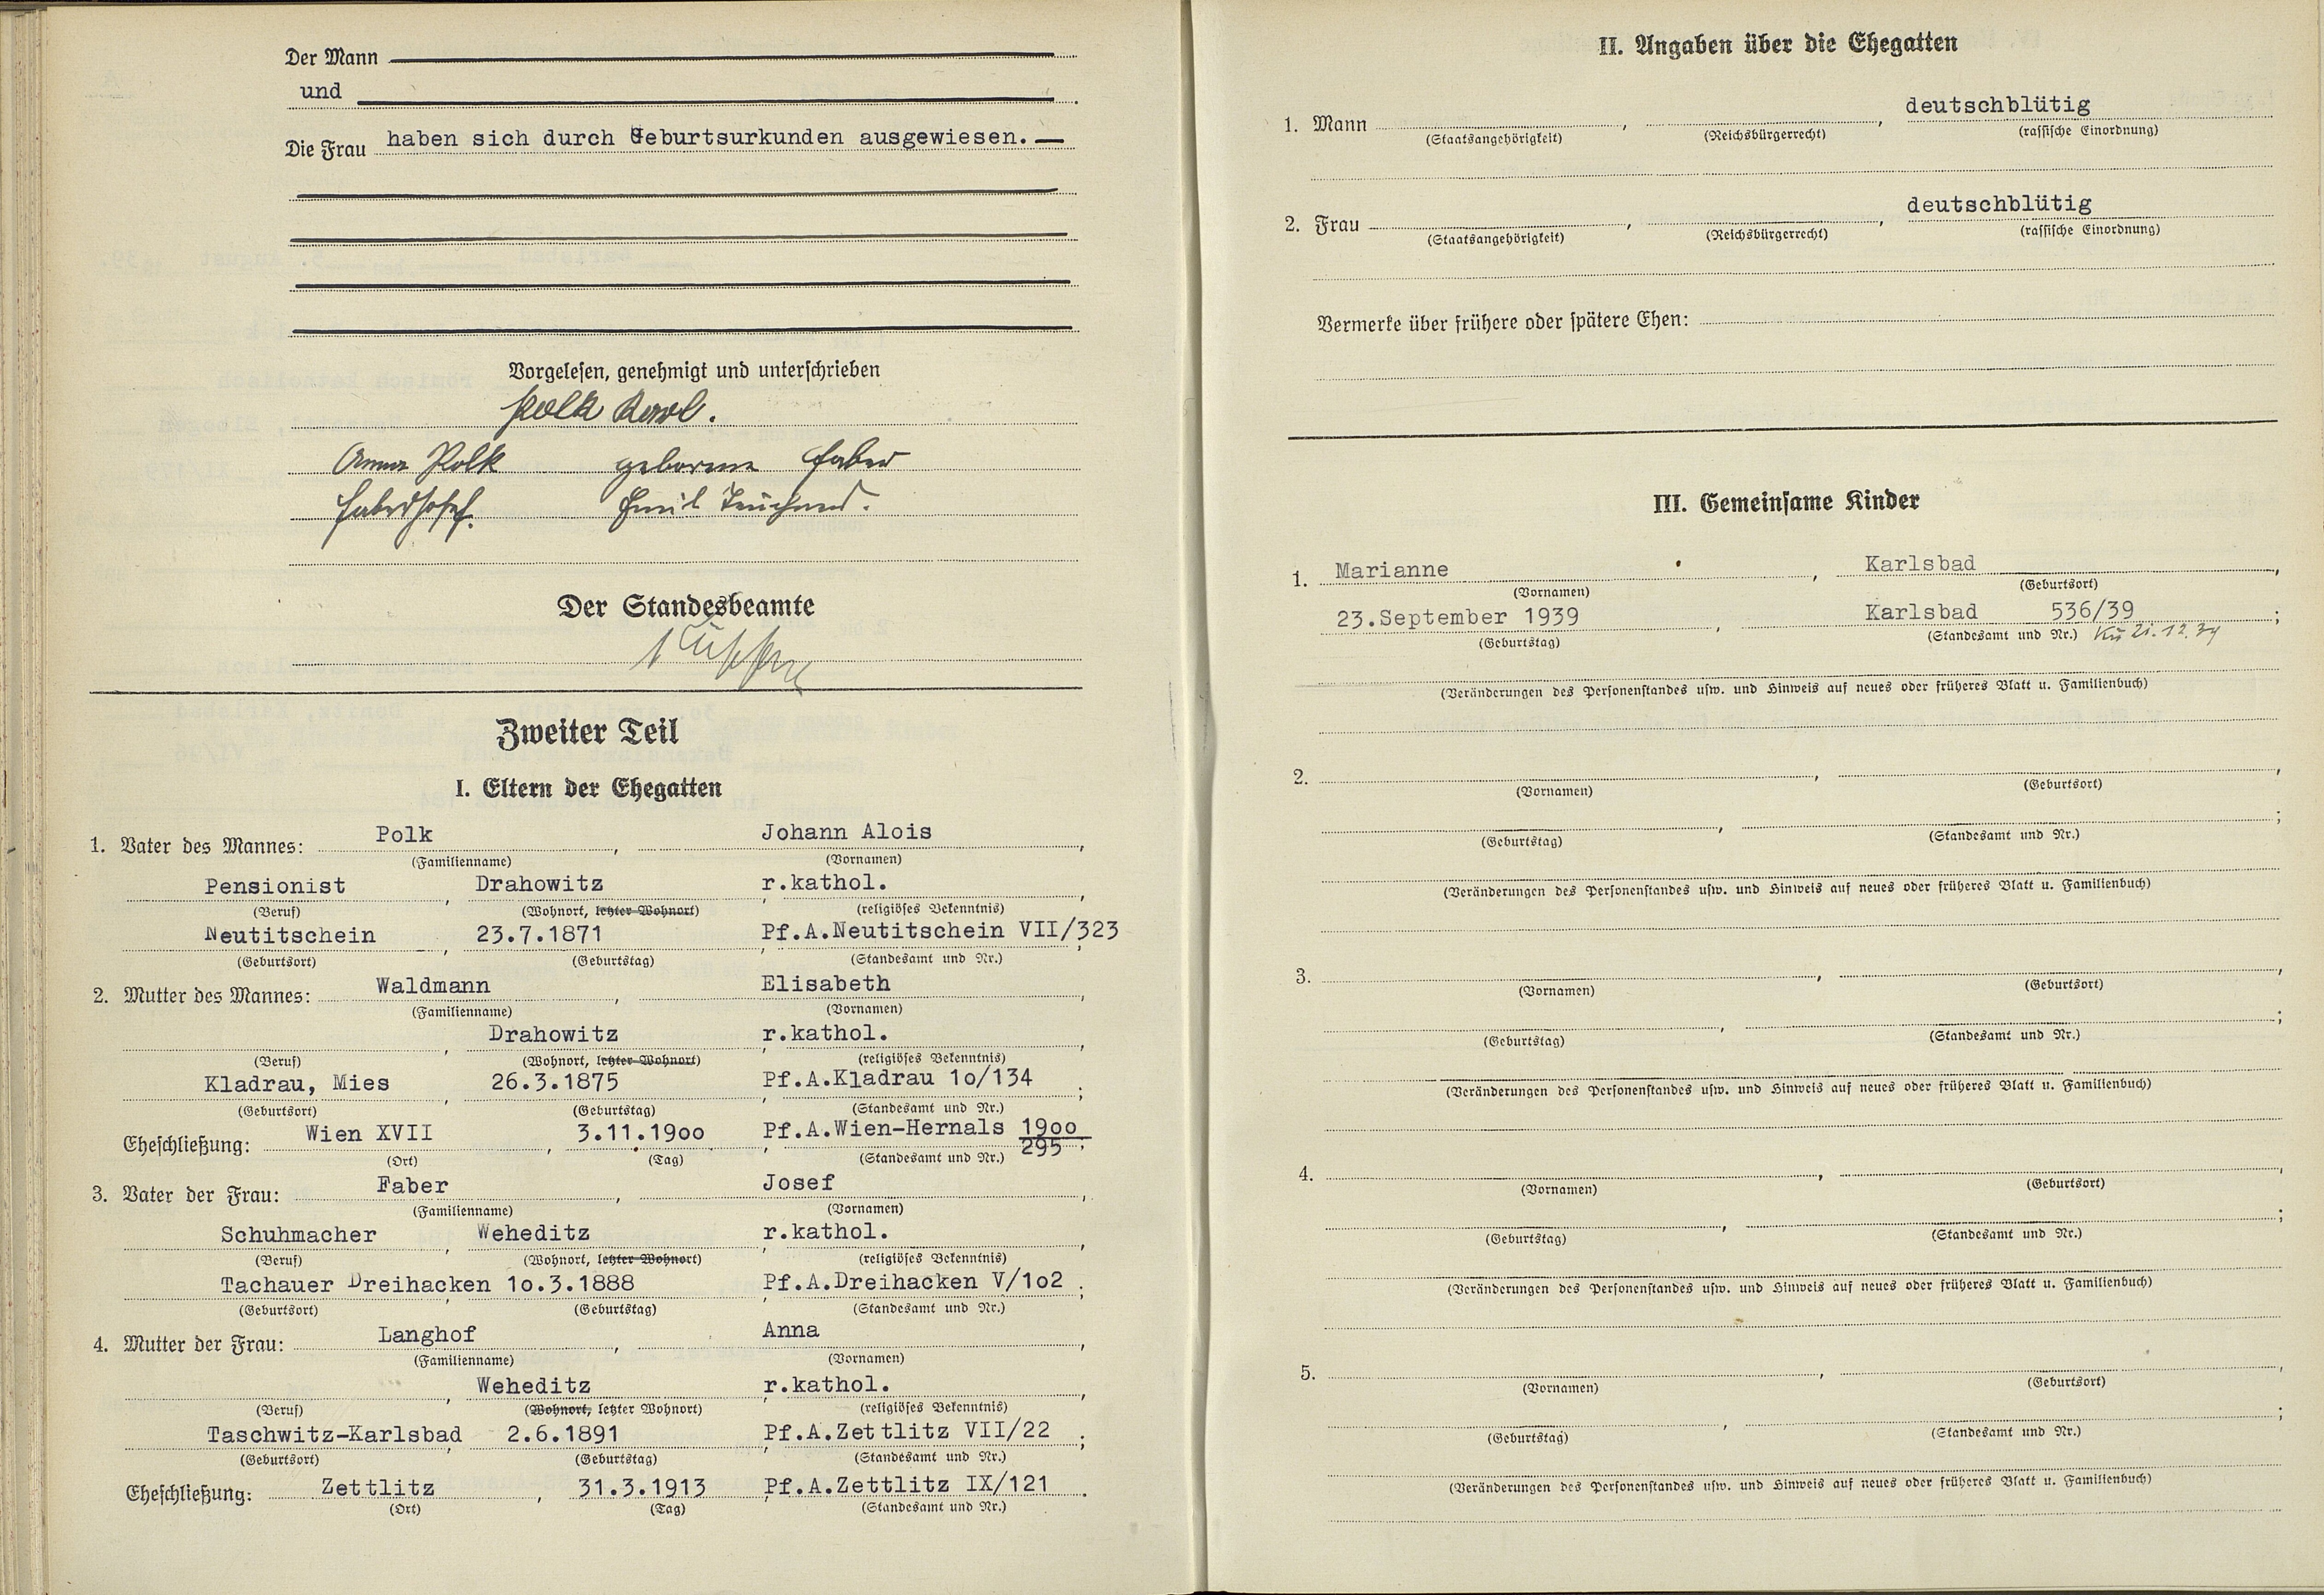 Der Mann
und
Die Frau haben sich durch Geburtsurkunden ausgewiesen.
Vorgelesen, genehmigt und unterschrieben
Polk Karl.
Anna Polk geborene Faber
Faber Josef. Emil
Der Standesbeamte
Zweiter Teil
I. Eltern der Ehegatten
1. Vater des Mannes: Polk , Johann Alois ,
(Familienname) (Vornamen)
Pensionist , Drahowitz , r.kathol. ,
(Beruf) (Wohnort, letzter Wohnort) (religiöses Bekenntnis)
Neutitschein , 23.7.1871 , Pf.A.Neutitschein VII/323 ;
(Geburtsort) (Geburtstag) (Standesamt und Nr.)
2. Mutter des Mannes: Waldmann , Elisabeth ,
(Familienname) (Vornamen)
, Drahowitz , r.kathol. ,
(Beruf) (Wohnort, letzter Wohnort) (religiöses Bekenntnis)
Kladrau, Mies , 26.3.1875 , Pf.A.Kladrau 1o/134 ;
(Geburtsort) (Geburtstag) (Standesamt und Nr.)
Eheschließung: Wien XVII , 3.11.19oo , Pf.A.Wien-Hernals 19oo
295 ;
(Ort) (Tag) (Standesamt und Nr.)
3. Vater der Frau: Faber , Josef ,
(Familienname) (Vornamen)
Schuhmacher , Weheditz , r.kathol. ,
(Beruf) (Wohnort, letzter Wohnort) (religiöses Bekenntnis)
Tachauer Dreihacken , 1o.3.1888 , Pf.A.Dreihacken V/1o2 ;
(Geburtsort) (Geburtstag) (Standesamt und Nr.)
4. Mutter der Frau: Langhof , Anna ,
(Familienname) (Vornamen)
, Weheditz , r.kathol. ,
(Beruf) (Wohnort, letzter Wohnort) (religiöses Bekenntnis)
Taschwitz-Karlsbad , 2.6.1891 , Pf.A.Zettlitz VII/22 ;
(Geburtsort) (Geburtstag) (Standesamt und Nr.)
Eheschließung: Zettlitz , 31.3.1913 , Pf.A.Zettlitz IX/121 .
(Ort) (Tag) (Standesamt und Nr.)
II. Angaben über die Ehegatten
1. Mann , , deutschblütig
(Staatsangehörigkeit) (Reichsbürgerrecht) (rassische Einordnung)
2. Frau , , deutschblütig
(Staatsangehörigkeit) (Reichsbürgerrecht) (rassische Einordnung)
Vermerke über frühere oder spätere Ehen:
III. Gemeinsame Kinder
1. Marianne , Karlsbad ,
(Vornamen) (Geburtsort)
23.September 1939 , Karlsbad 536/39 ;
(Geburtstag) (Standesamt und Nr.) Kü 21.12.39
(Veränderungen des Personenstandes usw. und Hinweis auf neues oder früheres Blatt u. Familienbuch)
2. , ,
(Vornamen) (Geburtsort)
, ;
(Geburtstag) (Standesamt und Nr.)
(Veränderungen des Personenstandes usw. und Hinweis auf neues oder früheres Blatt u. Familienbuch)
3. , ,
(Vornamen) (Geburtsort)
, ;
(Geburtstag) (Standesamt und Nr.)
(Veränderungen des Personenstandes usw. und Hinweis auf neues oder früheres Blatt u. Familienbuch)
4. , ,
(Vornamen) (Geburtsort)
, ;
(Geburtstag) (Standesamt und Nr.)
(Veränderungen des Personenstandes usw. und Hinweis auf neues oder früheres Blatt u. Familienbuch)
5. , ,
(Vornamen) (Geburtsort)
, ;
(Geburtstag) (Standesamt und Nr.)
(Veränderungen des Personenstandes usw. und Hinweis auf neues oder früheres Blatt u. Familienbuch)